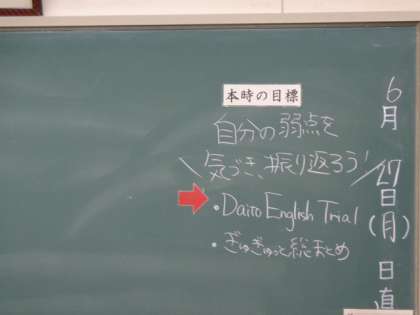 6月17日(月)日直
本時の目標
自分の弱点を
気づき、振り返ろう!
・Daito English Trial
・ぎゅぎゅっと総まとめ